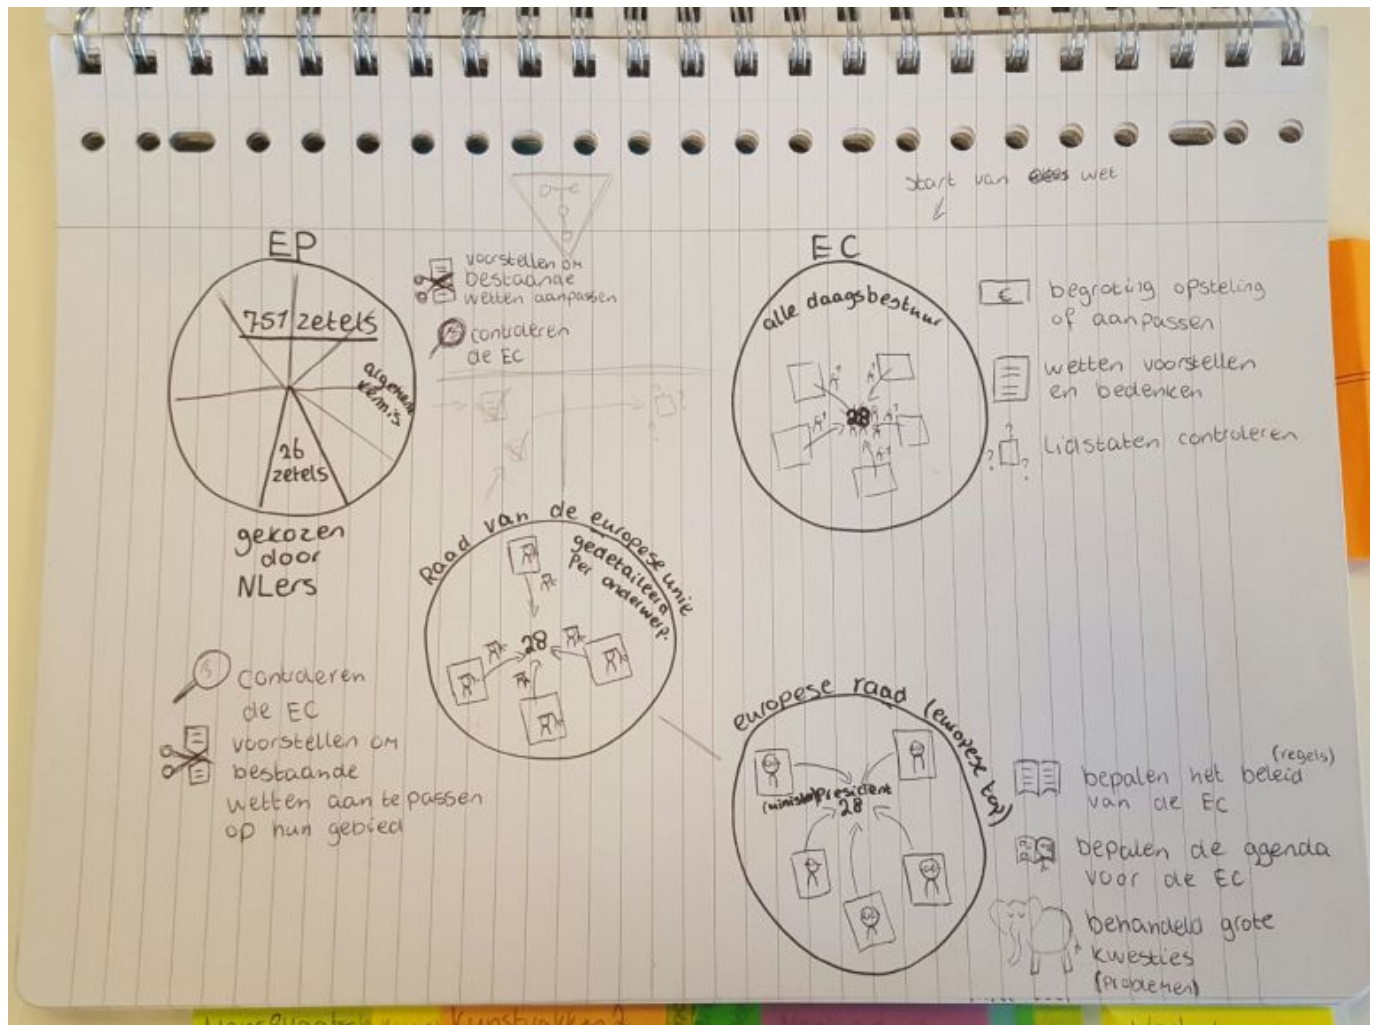 start van wet
EP
751 zetels
algemene
kennis
26
zetels
gekozen
door
NLers
voorstellen om
bestaande
wetten aanpassen
controleren
de EC
EC
alle daagsbestuur
28
€ begroting opsteling
of aanpassen
wetten voorstellen
en bedenken
? ? ? Lidstaten controleren
Raad van de europese unie
gedetaileerd
per onderwerp.
28
controleren
de EC
voorstellen om
bestaande
wetten aan te passen
op hun gebied
europese raad (europese top)
(minister)president
28
(regels)
bepalen het beleid
van de EC
bepalen de agenda
voor de EC
behandeld grote
kwesties
(problemen)